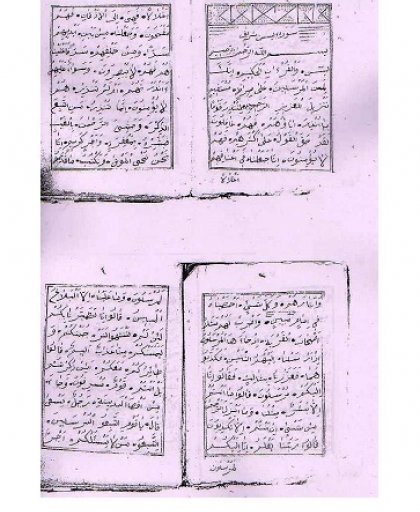 سورة يس شريف
بسم الله الرحمن الرحيم
يس والقران الحكيم انك
لمن المرسلين على صراط مستقيم
تنزيل العزيز الرحيم لتنذر قوما
ما انذر اباؤهم فهم غافلون
لقد حق القول على اكثرهم فهم
لا يؤمنون انا جعلنا في اعناقهم
اغلالا
اغلالا فهي الى الاذقان فهم
مقمحون وجعلنا من بين ايديهم
سدا ومن خلفهم سدا
فهم لا يبصرون وسواء عليهم
ءانذرتهم ام لم تنذرهم
لا يؤمنون انما تنذر من اتبع
الذكر وخشي بالغيب
فبشره بمغفرة واجر كريم انا
نحن نحي الموتى ونكتب ما قدموا
واثارهم وكل شيء احصيناه
في امام مبين واضرب لهم مثلا
اصحاب القرية اذ جاءها المرسلون
اذ ارسلنا اليهم اثنين فكذبو
هما فعززنا بثالث فقالوا انا
اليكم مرسلون قالوا ما انتم
الا بشر مثلنا وما انزل الرحمن
من شيء ان انتم الا تكذبون
قالوا ربنا يعلم انا اليكم
لمرسلون
لمرسلون وما علينا الا البلاغ
المبين قالوا انا تطيرنا بكم
لئن لم تنتهوا لنرجمنكم و
ليمسنكم منا عذاب اليم قالوا
طائركم معكم ائن ذكرتم
بل انتم قوم مسرفون وجاء
من اقصا المدينة رجل يسعى
قال يا قوم اتبعوا المرسلين
اتبعوا من لا يسئلكم اجرا